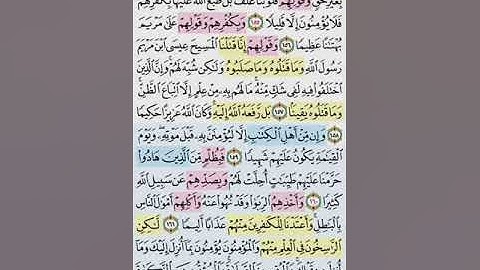 بِغَيْرِ حَقٍّ وَقَوْلِهِمْ قُلُوبُنَا غُلْفٌ بَلْ طَبَعَ اللَّهُ عَلَيْهَا بِكُفْرِهِمْ
فَلَا يُؤْمِنُونَ إِلَّا قَلِيلًا ١٥٥ وَبِكُفْرِهِمْ وَقَوْلِهِمْ عَلَى مَرْيَمَ
بُهْتَانًا عَظِيمًا ١٥٦ وَقَوْلِهِمْ إِنَّا قَتَلْنَا الْمَسِيحَ عِيسَى ابْنَ مَرْيَمَ
رَسُولَ اللَّهِ وَمَا قَتَلُوهُ وَمَا صَلَبُوهُ وَلَكِنْ شُبِّهَ لَهُمْ وَإِنَّ الَّذِينَ
اخْتَلَفُوا فِيهِ لَفِي شَكٍّ مِنْهُ مَا لَهُمْ بِهِ مِنْ عِلْمٍ إِلَّا اتِّبَاعَ الظَّنِّ
وَمَا قَتَلُوهُ يَقِينًا ١٥٧ بَلْ رَفَعَهُ اللَّهُ إِلَيْهِ وَكَانَ اللَّهُ عَزِيزًا حَكِيمًا
١٥٨ وَإِنْ مِنْ أَهْلِ الْكِتَابِ إِلَّا لَيُؤْمِنَنَّ بِهِ قَبْلَ مَوْتِهِ وَيَوْمَ
الْقِيَامَةِ يَكُونُ عَلَيْهِمْ شَهِيدًا ١٥٩ فَبِظُلْمٍ مِنَ الَّذِينَ هَادُوا
حَرَّمْنَا عَلَيْهِمْ طَيِّبَاتٍ أُحِلَّتْ لَهُمْ وَبِصَدِّهِمْ عَنْ سَبِيلِ اللَّهِ
كَثِيرًا ١٦٠ وَأَخْذِهِمُ الرِّبَا وَقَدْ نُهُوا عَنْهُ وَأَكْلِهِمْ أَمْوَالَ النَّاسِ
بِالْبَاطِلِ وَأَعْتَدْنَا لِلْكَافِرِينَ مِنْهُمْ عَذَابًا أَلِيمًا ١٦١ لَكِنِ
الرَّاسِخُونَ فِي الْعِلْمِ مِنْهُمْ وَالْمُؤْمِنُونَ يُؤْمِنُونَ بِمَا أُنْزِلَ إِلَيْكَ وَمَا